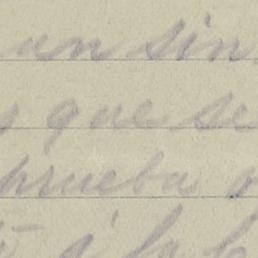 un sin
que se
prueba
á la